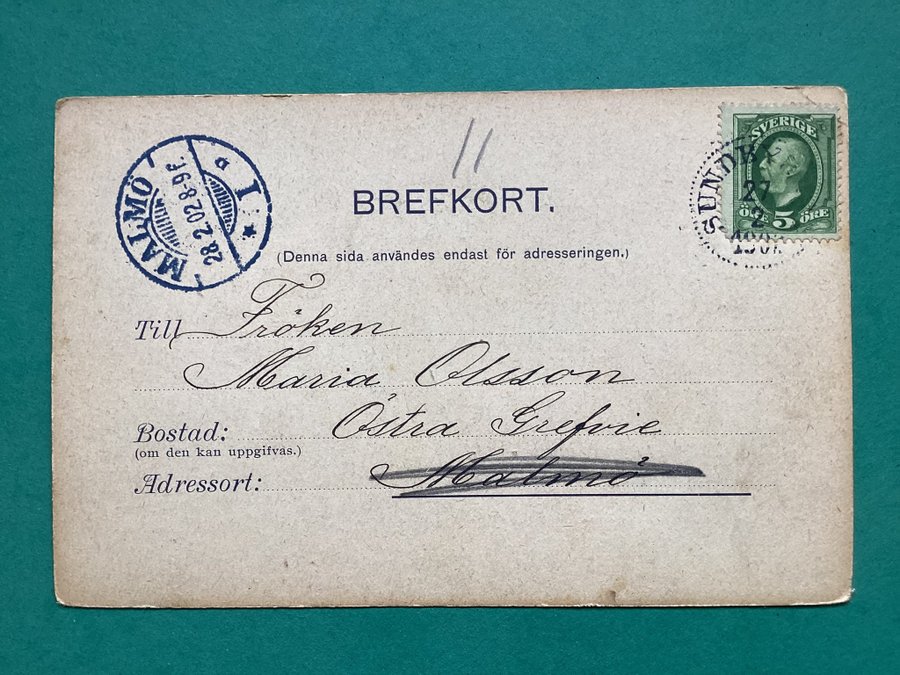 11
BREFKORT.
(Denna sida användes endast för adresseringen.)
SVERIGE
ÖRE 5 ÖRE
27
2
MALMÖ
28.2.02.8-9 F.
I
Till Fröken
Maria Olsson
Bostad: Östra Grefvie
(om den kan uppgifvas.)
Adressort: Malmö